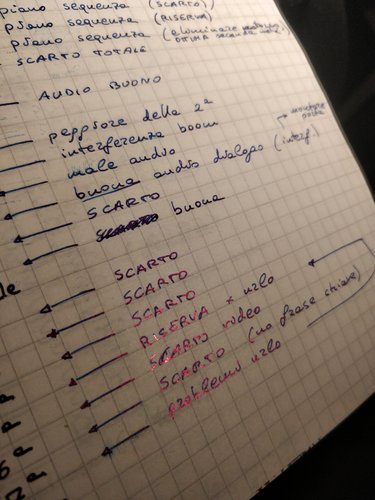 piano sequenza (SCARTO)
piano sequenza (RISERVA)
piano sequenza (eliminare
OTTIMA seconda metà)
SCARTO TOTALE
AUDIO BUONO
peggiore della 2ª
interferenza boom
male audio
buona audio dialogo (interf.)
→ montare
SCARTO
buona
SCARTO
SCARTO
SCARTO
RISERVA x urlo
SCARTO video
SCARTO (no frase chiave)
problemi urlo